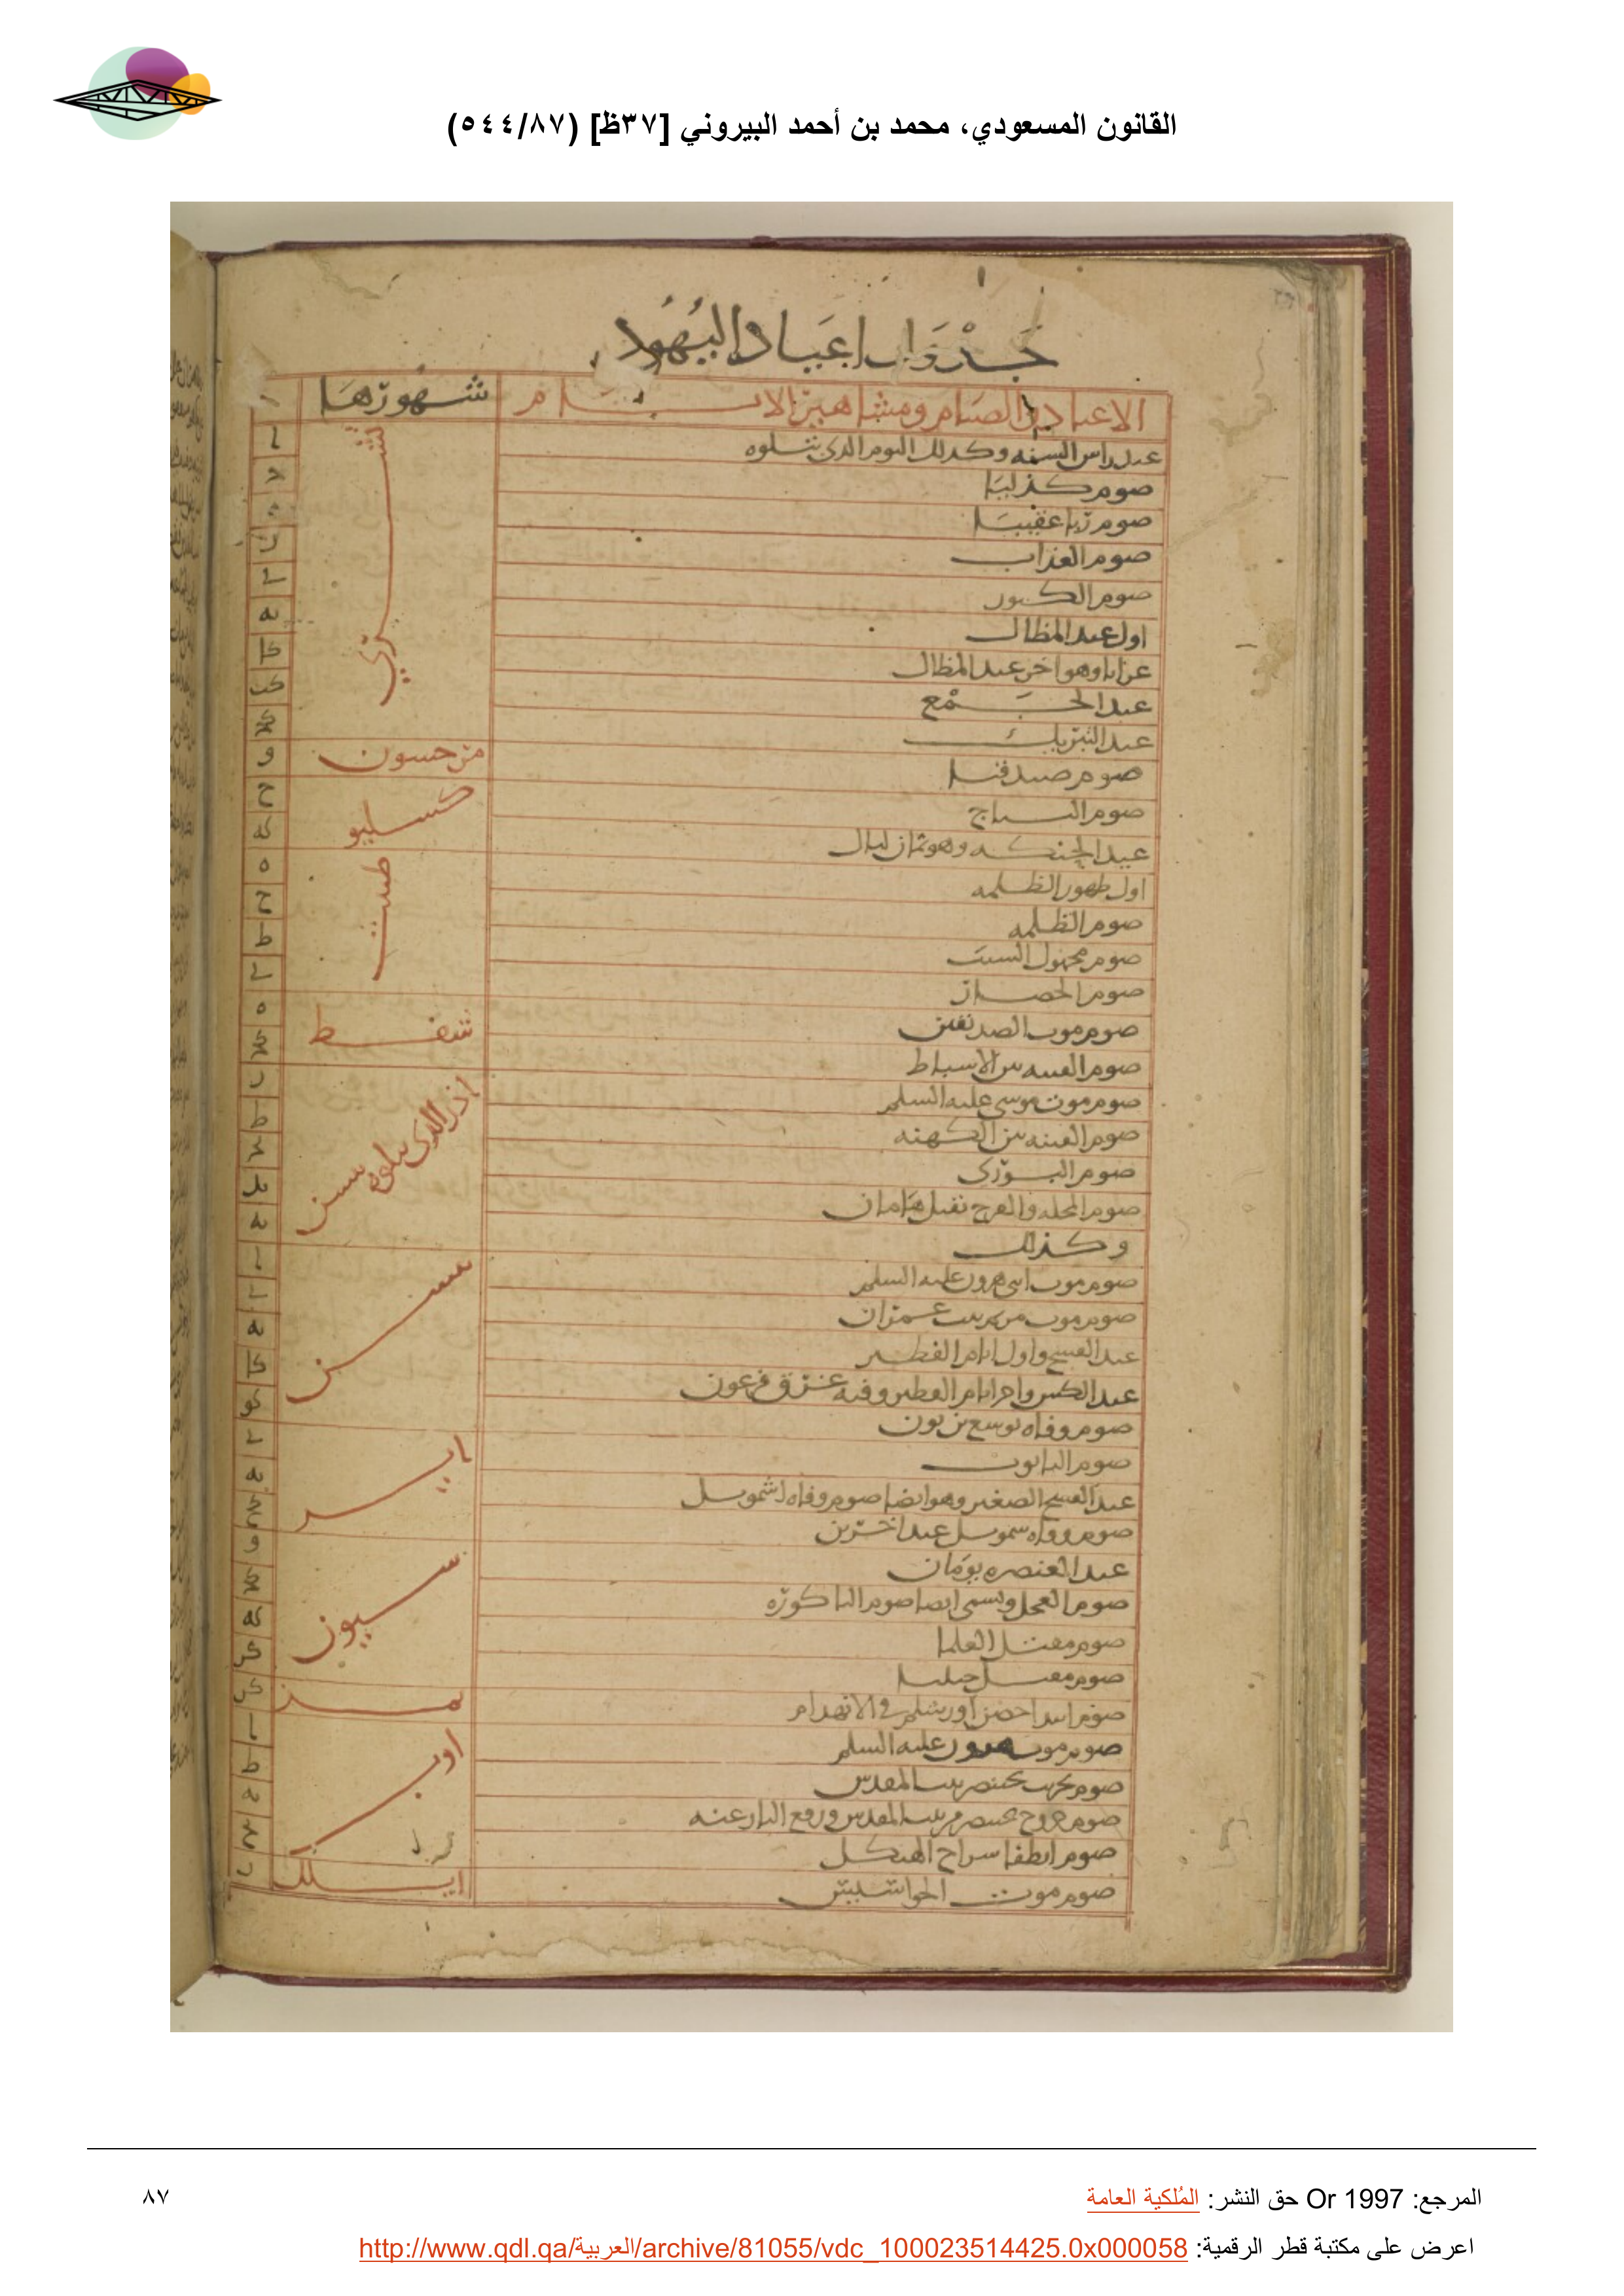 القانون المسعودي، محمد بن أحمد البيروني [٣٧ظ] (٥٤٤/٨٧)
جَدْوَل اعيَاد اليَهُود
الاعياد والصيام ومشاهير الايام شهورها
عيد راس السنه وكدلك اليوم الدى يتلوه تشري ا
صوم كذليا
صوم ربا عقيبا
صوم العذاب
صوم الكبور ى
اول عيد المظال يه
عرابا وهو اخر عيد المظال كا
عيد الجمع كب
عيد التبريك كح
صوم صيدقيا مرحسون و
صوم ح كسليو
عيد الحنكه وهو ثمان ليال كه
اول ظهور الظلمه طبث ه
صوم الظلمه ح
صوم مجهول السبب ط
صوم الحصار ى
صوم موت الصديقين شفط ه
صوم الفتنه بين الاسباط كح
صوم موت موسى عليه السلم اذر الدى يتلوه نيسن ز
صوم الفتنه بين الكهنه ط
صوم البوري يح
صوم المجله والفرح بقتل هامان يد
وكذلك يه
صوم موت ابنى هرون عليه السلم نيسن ا
صوم موت مريم بنت عمران ى
عيد الفسح واول ايام الفطير يه
عيد الكبس واخر ايام الفطير وفيه غرق فرعون كا
صوم وفاه يوسع بن نون كو
صوم التابوت اير ى
عيد الفسح الصغير وهو ايضا صوم وفاه اشمويل يه
صوم وفاه سمويل عند اخرين كح
عيد العنصره يومان سيون و
صوم العجل ويسمى ايضا صوم الباكوره كح
صوم مقتل العلما كه
صوم مقتل كز
صوم ابتدا حصن اورشلم فى الانهدام تمز كز
صوم موت هرون عليه السلم اوب ا
صوم تخريب بختنصر بيت المقدس ط
صوم خروج بختنصر من بيت المقدس ورفع النار عنه يه
صوم انطفا سراج الهيكل يح
صوم موت الجواسيس ايلل ز
المرجع: Or 1997 حق النشر: المُلكية العامة
٨٧
اعرض على مكتبة قطر الرقمية: http://www.qdl.qa/العربية/archive/81055/vdc_100023514425.0x000058